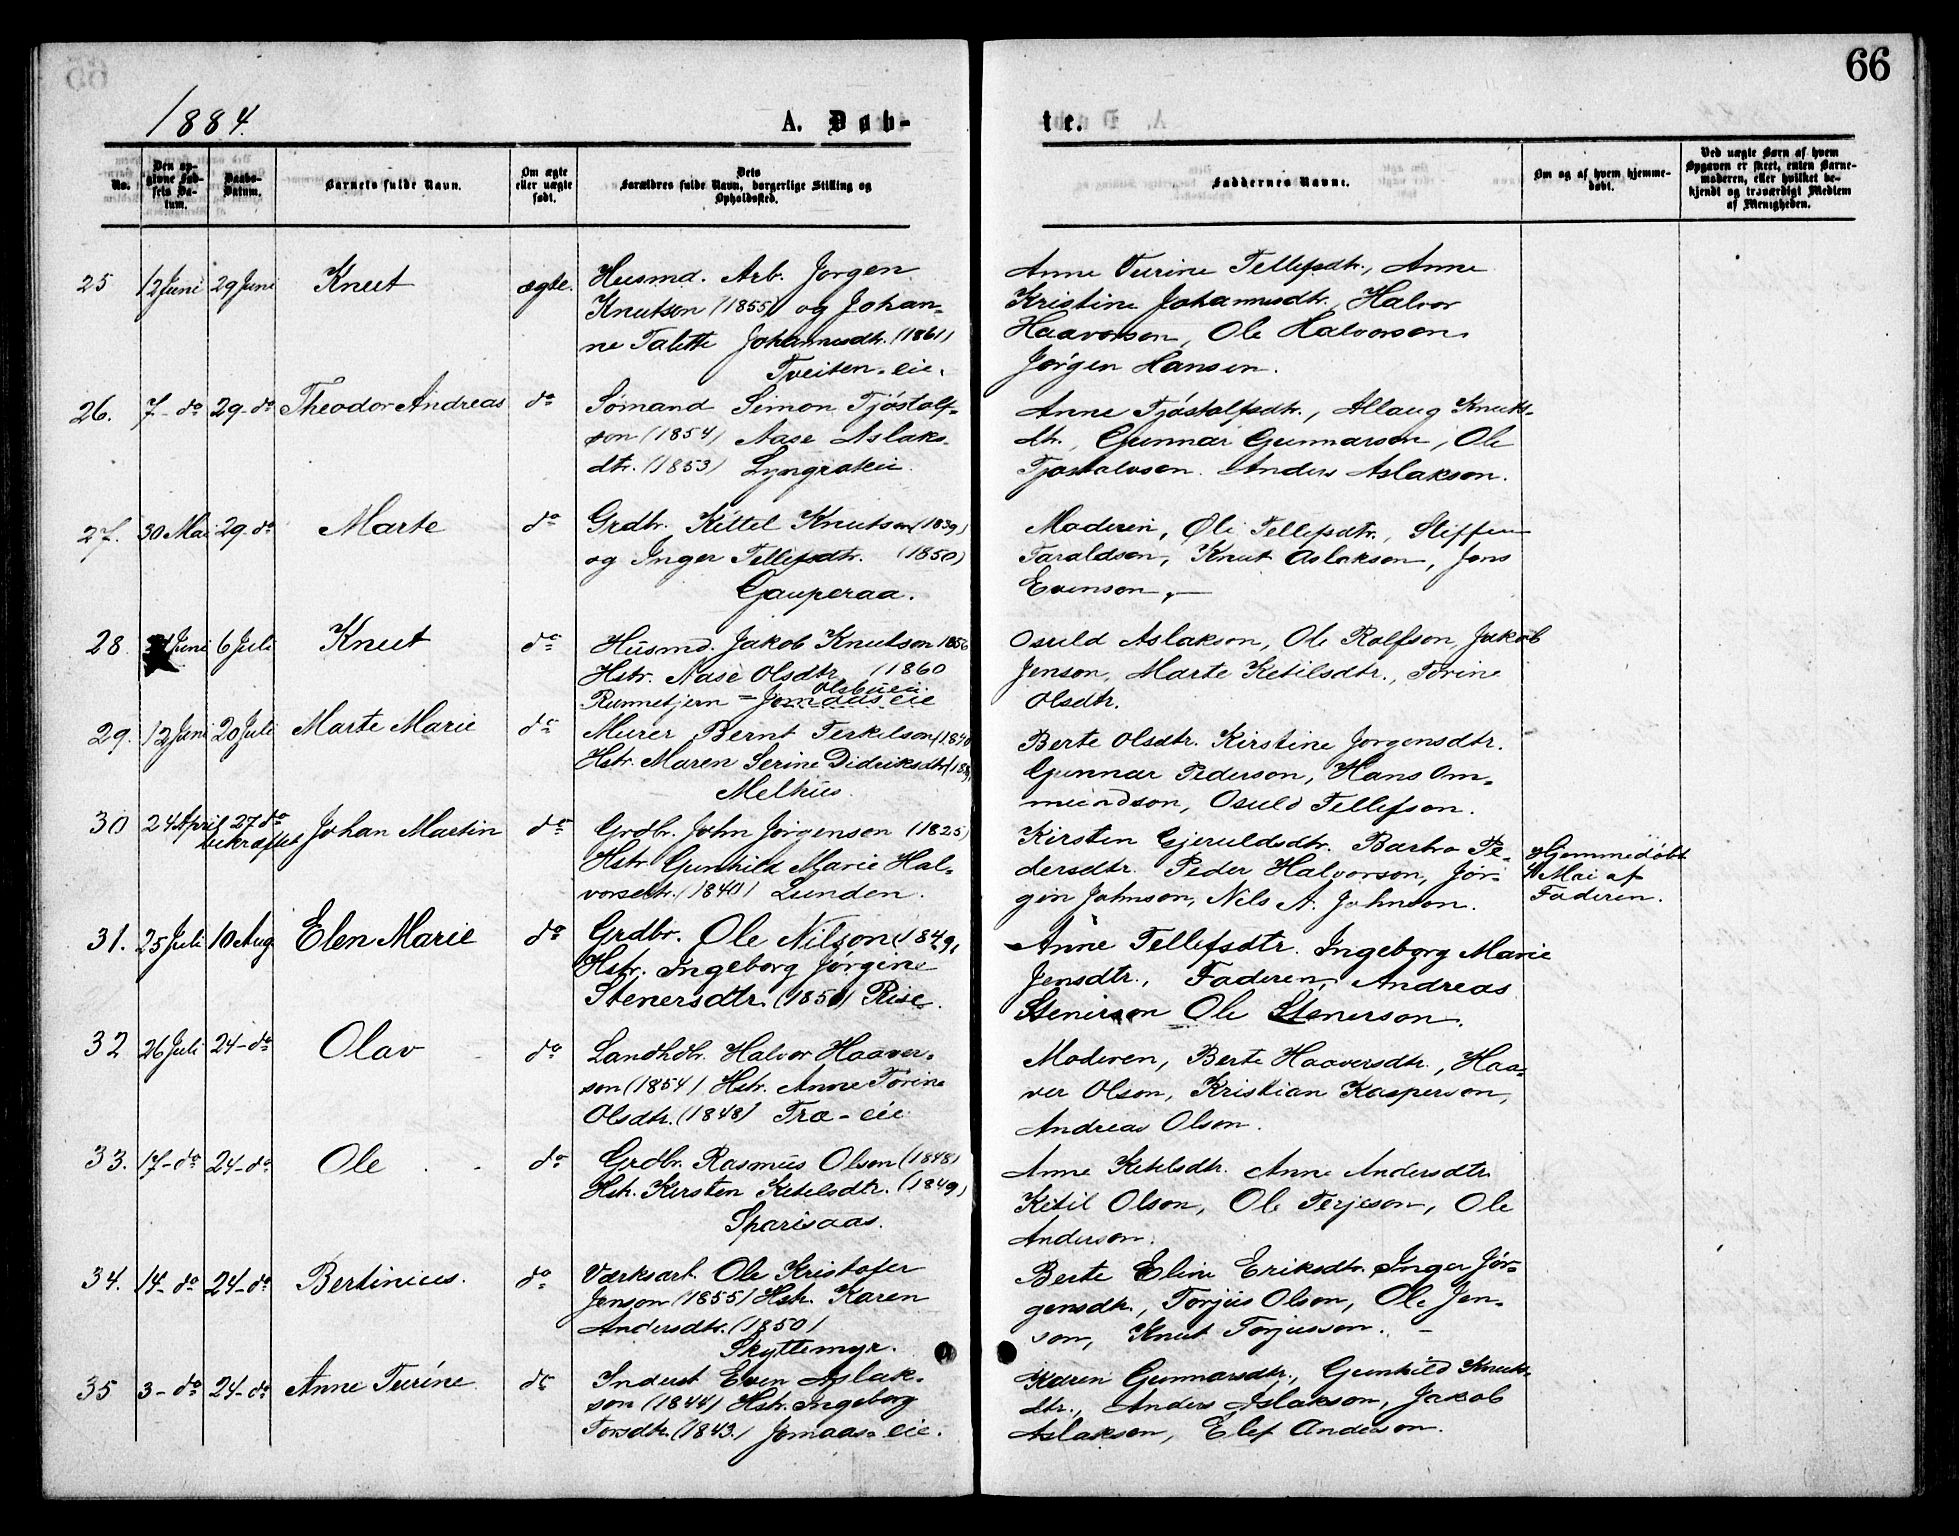 66
1884.
A. Døb-
te.
No.
Den op-
givne Fød-
sels Da-
tum.
Daabs-
Datum.
Barnets fulde Navn.
Om ægte
eller uægte
født.
Dets
Forældres fulde Navn, borgerlige Stilling og
Opholdssted.
Faddernes Navne.
Om og af hvem hjemme-
døbt.
Ved uægte Børn af hvem
Opgaven er skeet, enten Barne-
moderen, eller hvilket be-
kjendt og troværdigt Medlem
af Menigheden.
25 12 Juni 29 Juni Knut ægte.
Husmd. Arb. Jørgen
Knutson (1855) og Johan-
ne Talette Johannesdtr. (1861)
Tveiten-eie.
Anne Turine Tellefsdtr., Anne
Kristine Johannesdtr., Halvor
Haavorson, Ole Halvorson
Jørgen Hansen.
26. 7-do 29-do Theodor Andreas do
Sømand Simon Tjøstolf-
son (1854) Aase Aslaks-
dtr. (1853)
Anne Tjøstolfsdtr., Allaug Knuts-
dtr., Gunnar Gunnarson, Ole
Tjøstolvson. Anders Aslakson.
27. 30 Mai 29-do Marte do
Grdbr. Kittel Knutson (1839)
og Inger Tellefsdtr. (1850)
Gauperaa.
Moderen, Oli Tellefsdtr., Steffen
Taraldson, Knut Aslakson, Jens
Evenson,—
28. Juni 6 Juli Knut do
Husmd. Jakob Knutson 1856
Hstr. Aase Olsdtr. (1860
Olsbueie
Runnetjern = Jomaas eie
Osuld Aslakson, Ole Rolfson, Jakob
Jenson, Marte Ketilsdtr., Torine
Olsdtr.
29. 12 Juni 20 Juli Marte Marie do
Murer Bernt Terkelson (1840
Hstr. Maren Serine Didriksdtr
Melhus.
Berte Olsdtr. Kirstine Jørgensdtr.
Gunnar Pederson, Hans Om-
mundson, Osuld Tellefson.
30 24 April 27 do Johan Martin do
bekræftet
Grdbr. John Jørgenson (1825)
Hstr. Gunhild Marie Hal-
vorsdtr. (1840) Lunden.
Kirsten Gjeruldsdtr. Barbro Pe-
dersdtr. Peder Halvorson, Jør-
gen Johnson, Nils A. Johnson.
Hjemmedøbt
4 Mai af
Faderen.
31. 25 Juli 10 Aug. Elen Marie do
Grdbr. Ole Nilson (1849,
Hstr. Ingeborg Jørgine
Stenersdtr. (1851) Rise.
Anne Tellefsdtr. Ingeborg Marie
Jensdtr., Faderen, Andreas
Stenerson Ole Stenerson.
32 26 Juli 24-do Olav do
Landhdlr. Halvor Haaver-
son (1854) Hstr. Anne Torine
Olsdtr. (1848) Træ-eie
Moderen, Berte Haaversdtr., Haa-
ver Olson, Kristian Kasperson,
Andreas Olson.
33. 17-do 24-do Ole do
Grdbr. Rasmus Olson (1848)
Hstr. Kirsten Ketelsdtr. (1849)
Sparsaas.
Anne Ketelsdtr. Anne Andersdtr
Ketil Olson, Ole Terjeson, Ole
Anderson.
34. 14-do 24-do Bertinius. do
Værksarb. Ole Kristofer
Jenson (1855) Hstr. Karen
Andersdtr. (1850)
Skyttemyr.
Berte Eline Eriksdtr. Inger Jør-
gensdtr., Torjus Olson, Ole Jen-
son, Knut Torjusson. —
35 3-do 24-do Anne Turine do
Inderst Even Aslak-
son (1844) Hstr. Ingeborg
Torsdtr. (1843.) Jomaas-eie.
Karen Gunnarsdtr., Gunhild Knuts-
dtr., Anders Aslakson, Jakob
Aslakson, Elef Anderson.